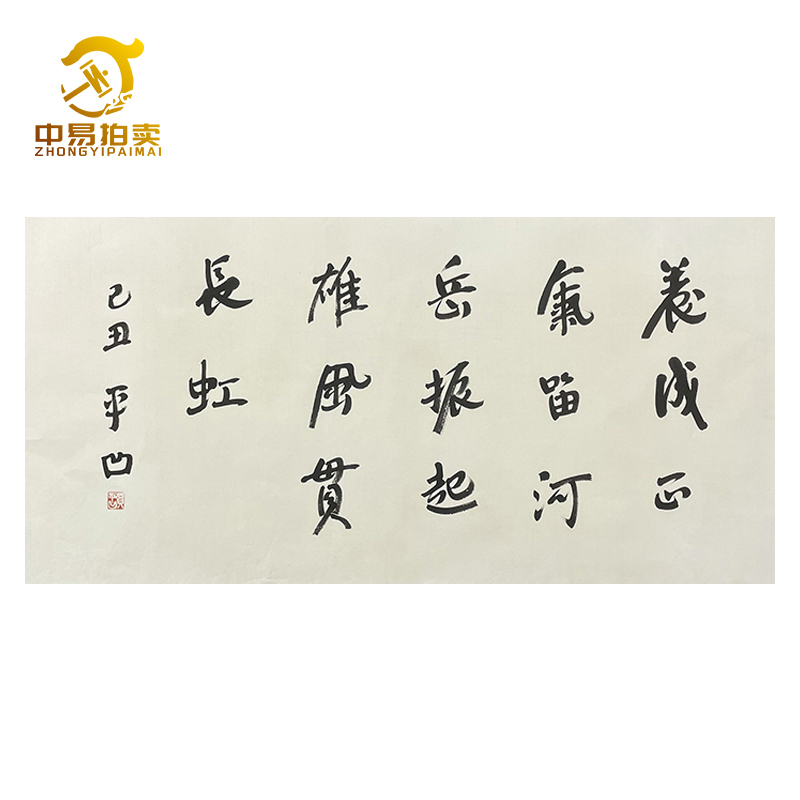 中易拍卖
ZHONGYIPAIMAI
养成正
氣留河
岳振起
雄風貫
長虹
己丑 平凹